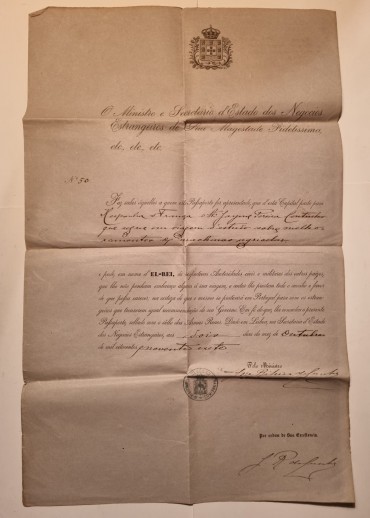 O Ministro e Secretario d'Estado dos Negocios
Estrangeiros de Sua Magestade Fidelissima,
etc, etc, etc.
Nº 50.
Faz saber áquelles a quem este Passaporte for apresentado, que d'esta Capital parte para
Hespanha e França o Sr. Jayme Pereira Coutinho
que segue em viagem d'estudo sobre
e pede, em nome d'EL-REI, ás respectivas Auctoridades civis e militares dos outros paizes,
que lhe não ponham embaraço algum á sua viagem, e antes lhe prestem todo o auxilio e favor
de que possa carecer, na certeza de que o mesmo se praticará em Portugal para com os estrangeiros
que trouxerem igual recommendação do seu Governo. Em fé do que, lhe mandou o presente
Passaporte, sellado com o sello das Armas Reaes. Dado em Lisboa, na Secretaria d'Estado
dos Negocios Estrangeiros, aos dois dias do mez de Outubro
de mil oitocentos e noventa e sete
Pelo Ministro
Por ordem de Sua Excellencia